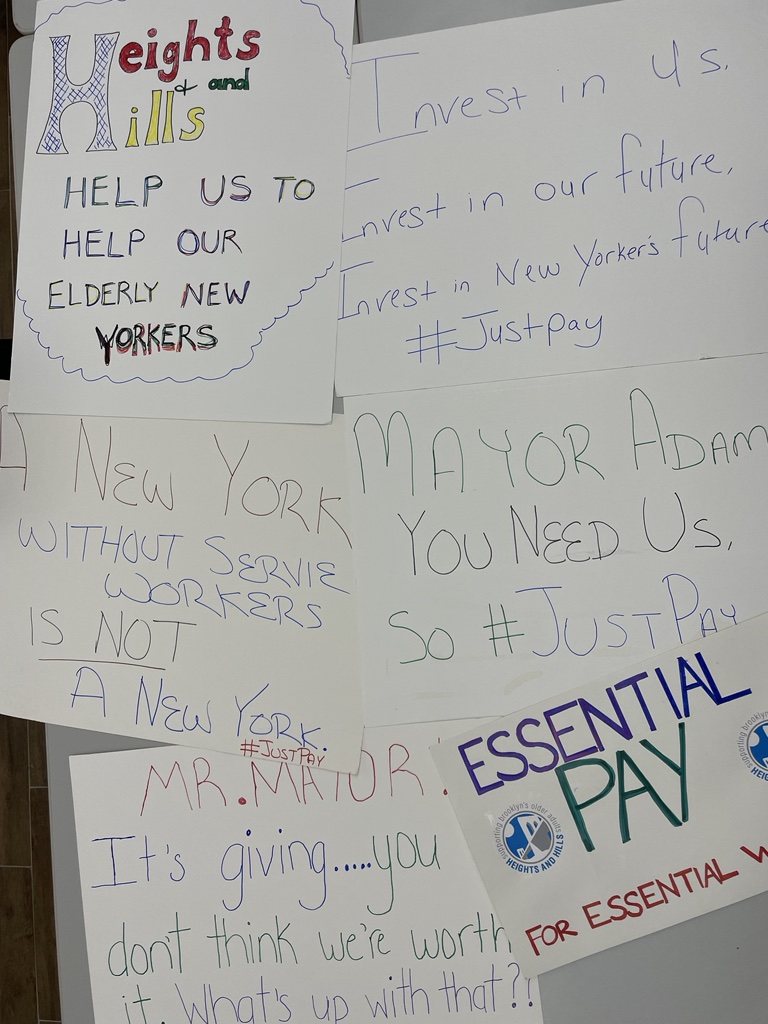 Heights
& and
Hills
HELP US TO
HELP OUR
ELDERLY NEW
YORKERS
Invest in us.
Invest in our future,
Invest in New Yorker's future
#Justpay
A NEW YORK
WITHOUT SERVIE
WORKERS
IS NOT
A NEW YORK.
#JUSTPAY
MAYOR ADAM
YOU NEED US,
SO #JUSTPAY
ESSENTIAL
PAY
supporting brooklyn's older adults
HEIGHTS AND HILLS
supporting brooklyn's
HEIG
FOR ESSENTIAL W
MR. MAYOR!
It's giving.....you
don't think we're worth
it. What's up with that??